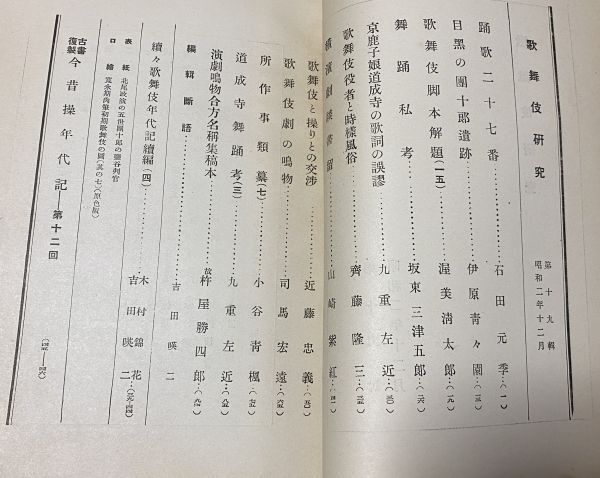 歌舞伎研究
第十九輯
昭和二年十二月
踊歌二十七番……石田元季…(一)
目黑の團十郎遺跡……伊原青々園…
歌舞伎脚本解題(一五)……渥美淸太郎…
舞踊私考……坂東三津五郎…
京鹿子娘道成寺の歌詞の誤謬……九重左近…
歌舞伎役者と時樣風俗……齊藤隆三…
山崎紫紅…
歌舞伎と操りとの交渉……近藤忠義…
歌舞伎劇の鳴物……司馬宏遠…
所作事類纂(七)……小谷青楓…
道成寺舞踊考(三)……九重左近…
演劇鳴物合方名稱集稿本……故 杵屋勝四郎…
編輯斷語……吉田暎二
續々歌舞伎年代記續編(四)……木村錦花 吉田暎二…
表紙 北尾政演の五世團十郎の鹽谷判官
口繪 寬永期肉筆初期歌舞伎の圖(其の七)(原色版)
古書複製 今昔操年代記——第十二回